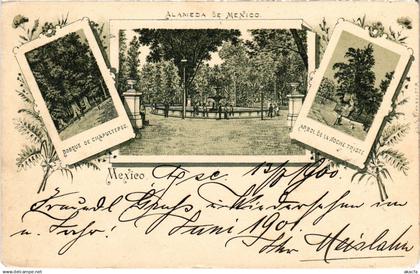 ALAMEDA DE MEXICO.
BOSQUE DE CHAPULTEPEC.
ARBOL DE LA NOCHE TRISTE.
Mexico
Freundl Gruß u. Wiedersehen im
Juni 1901.
Ihr